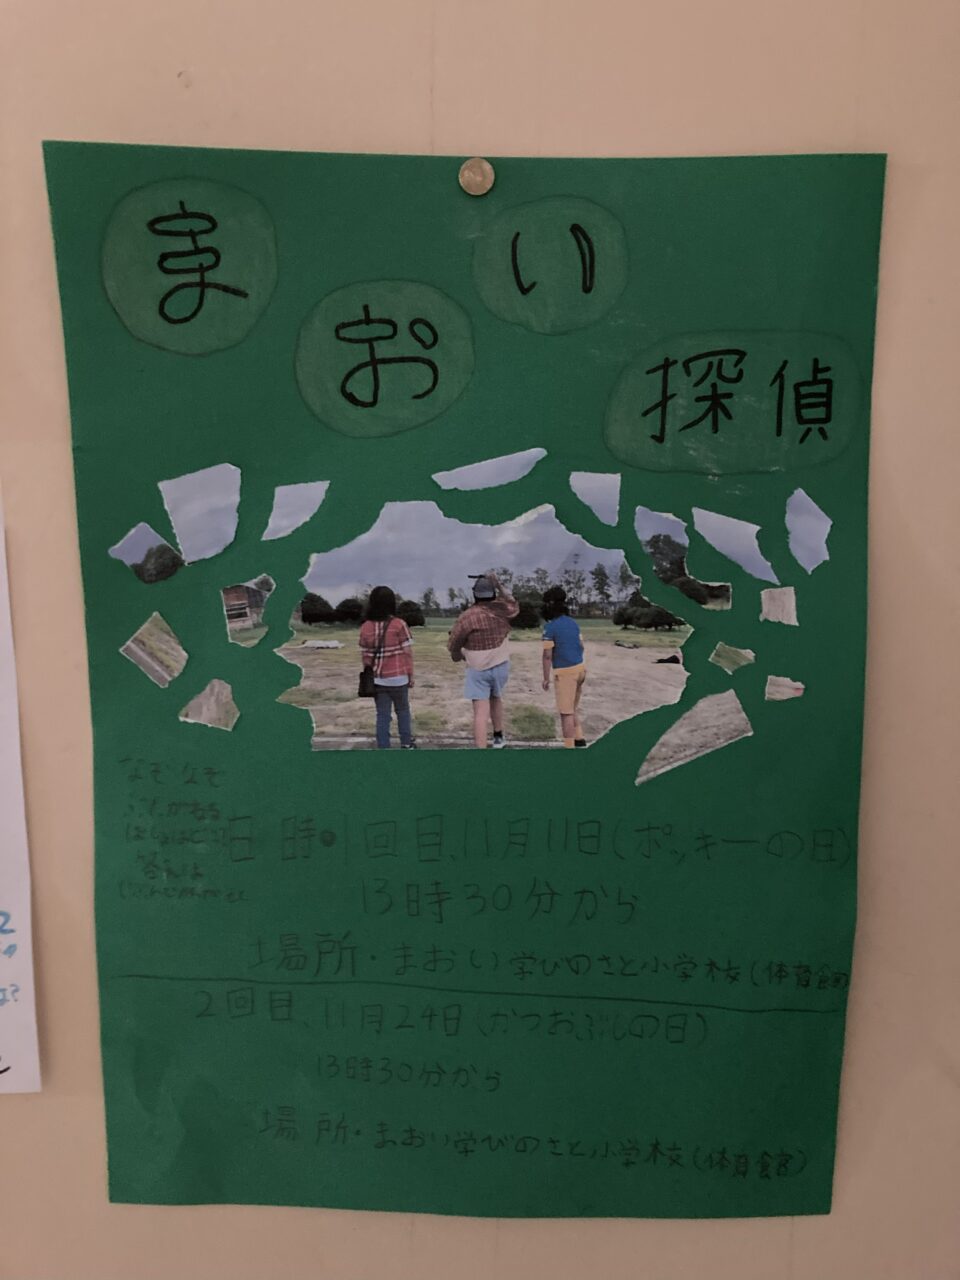 まおい探偵
なぞなぞ
ぶたがいる
答えは
日時・1回目、11月11日(ポッキーの日)
13時30分から
場所・まおい学びのさと小学校(体育館)
2回目、11月24日(かつおぶしの日)
13時30分から
場所・まおい学びのさと小学校(体育館)